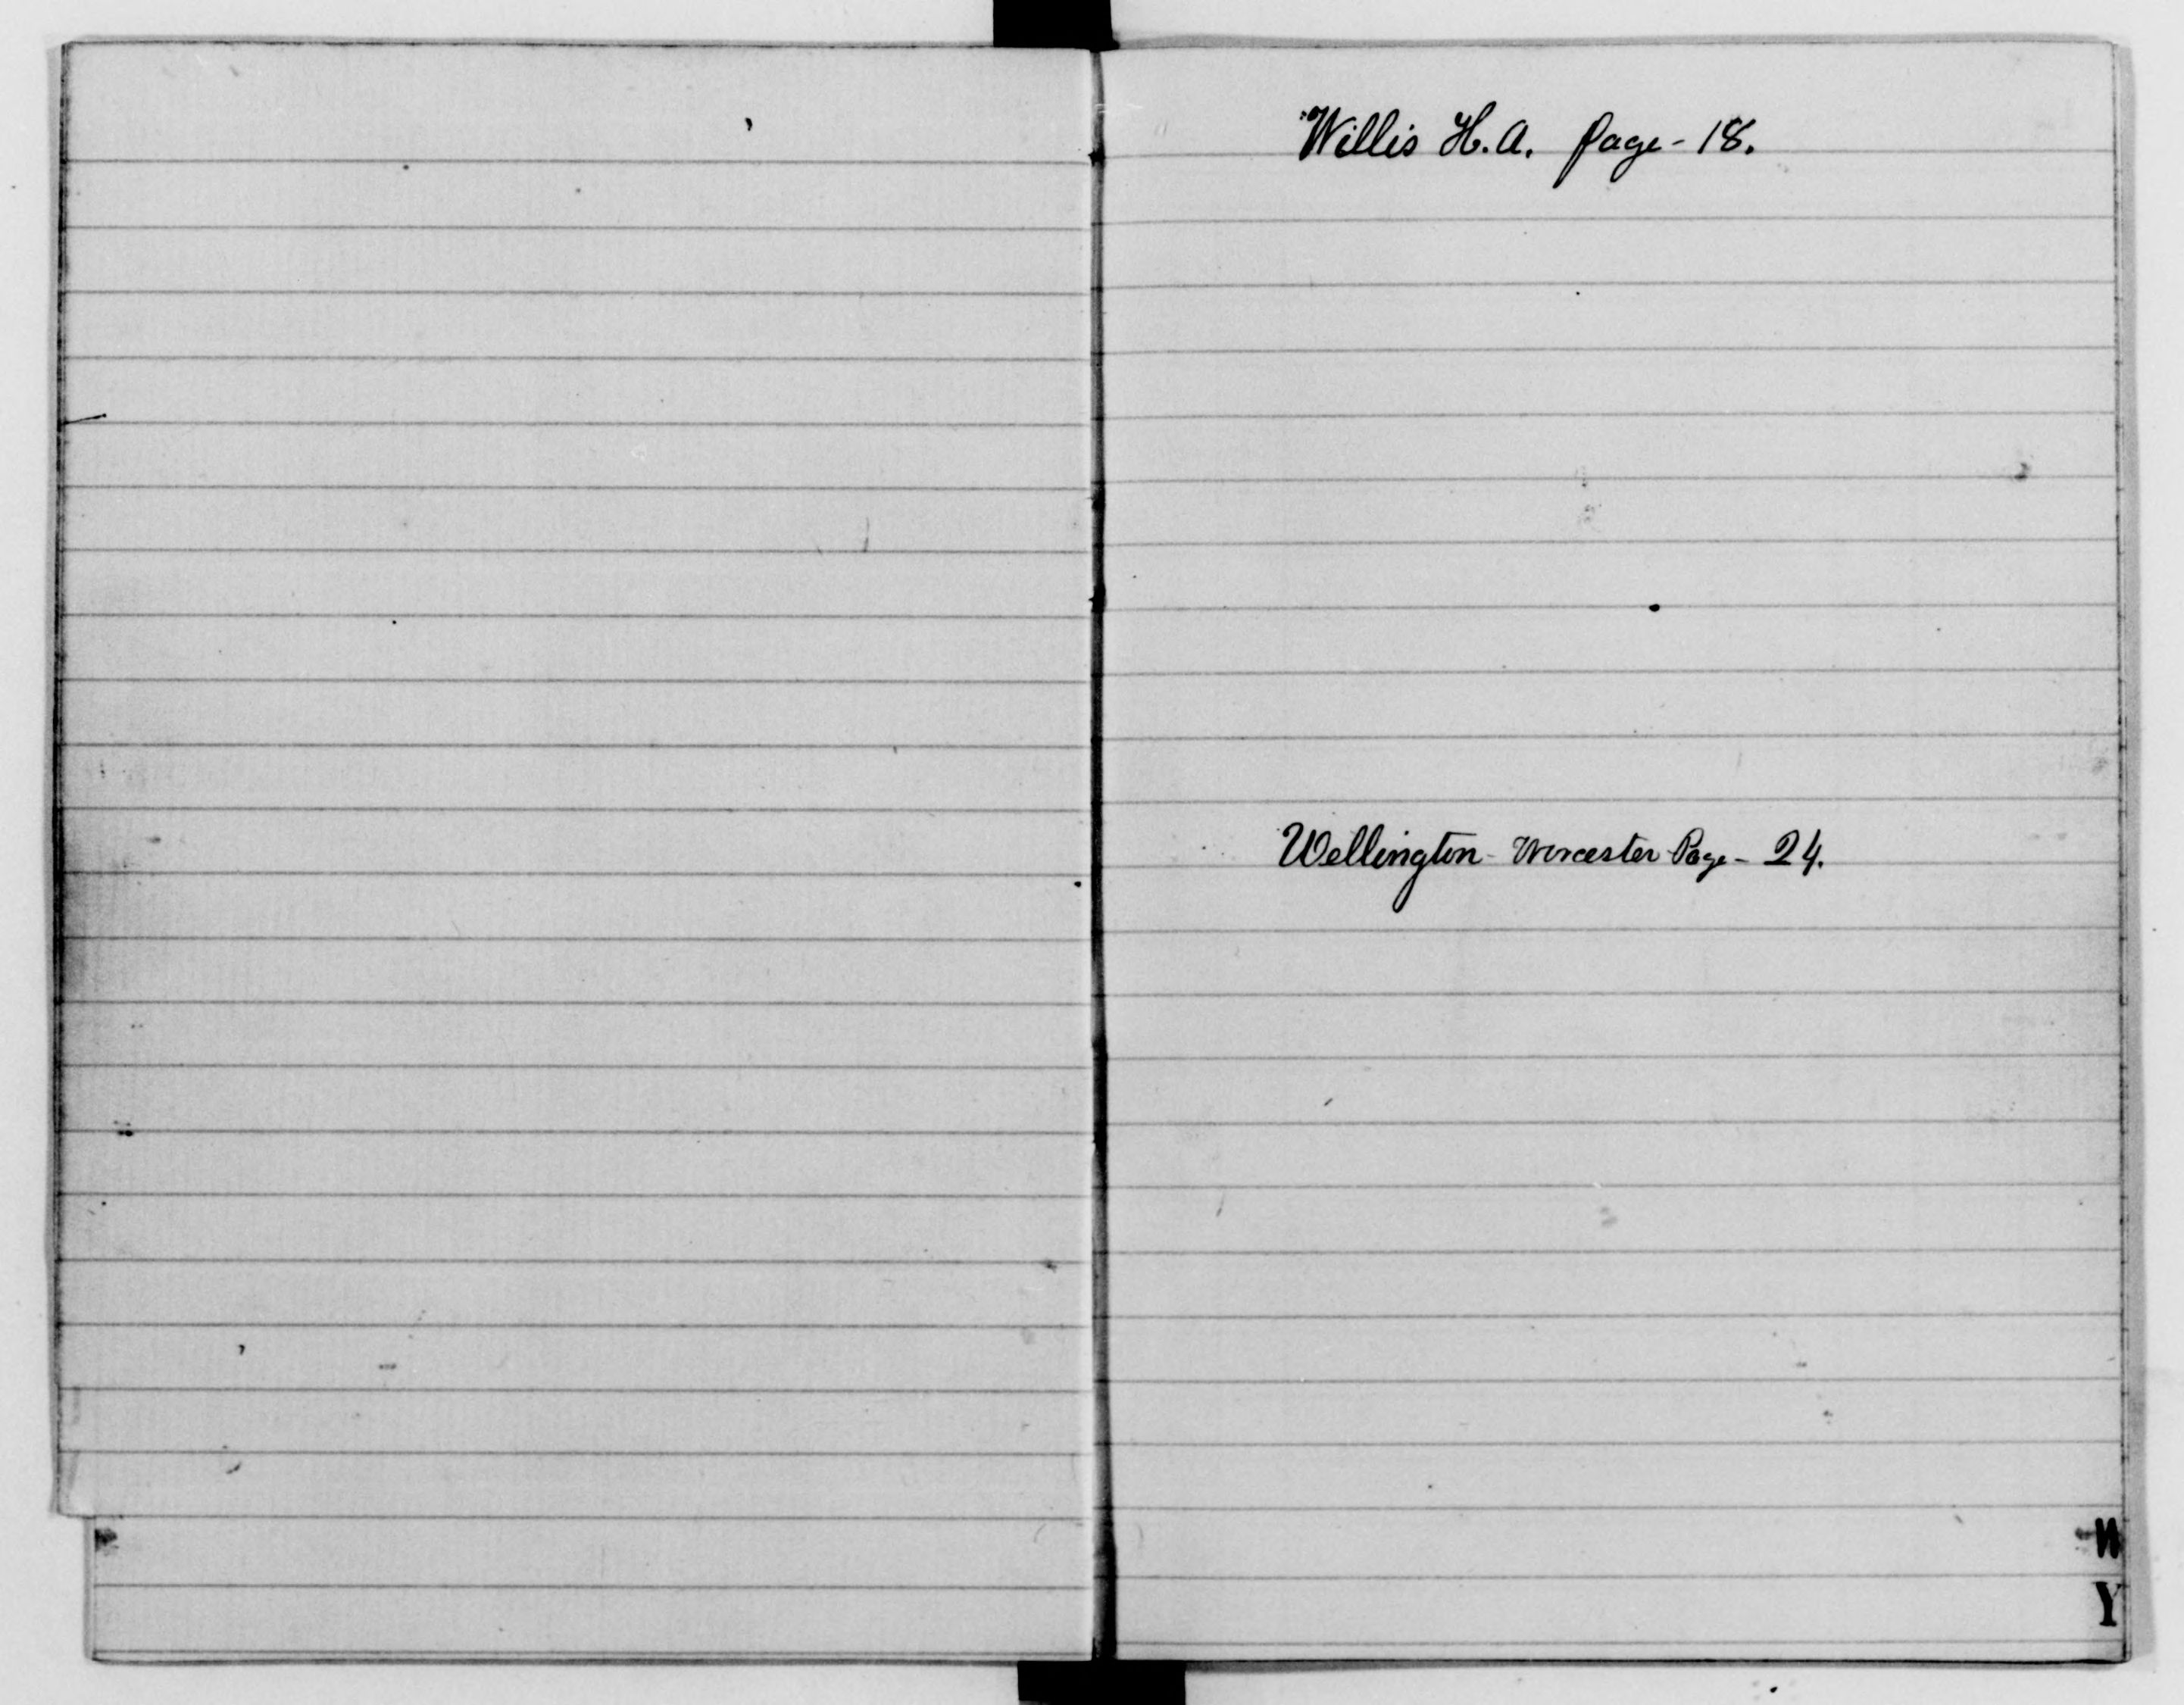 Willis H. A. page - 18.
Wellington - Worcester Page - 24.
W
Y